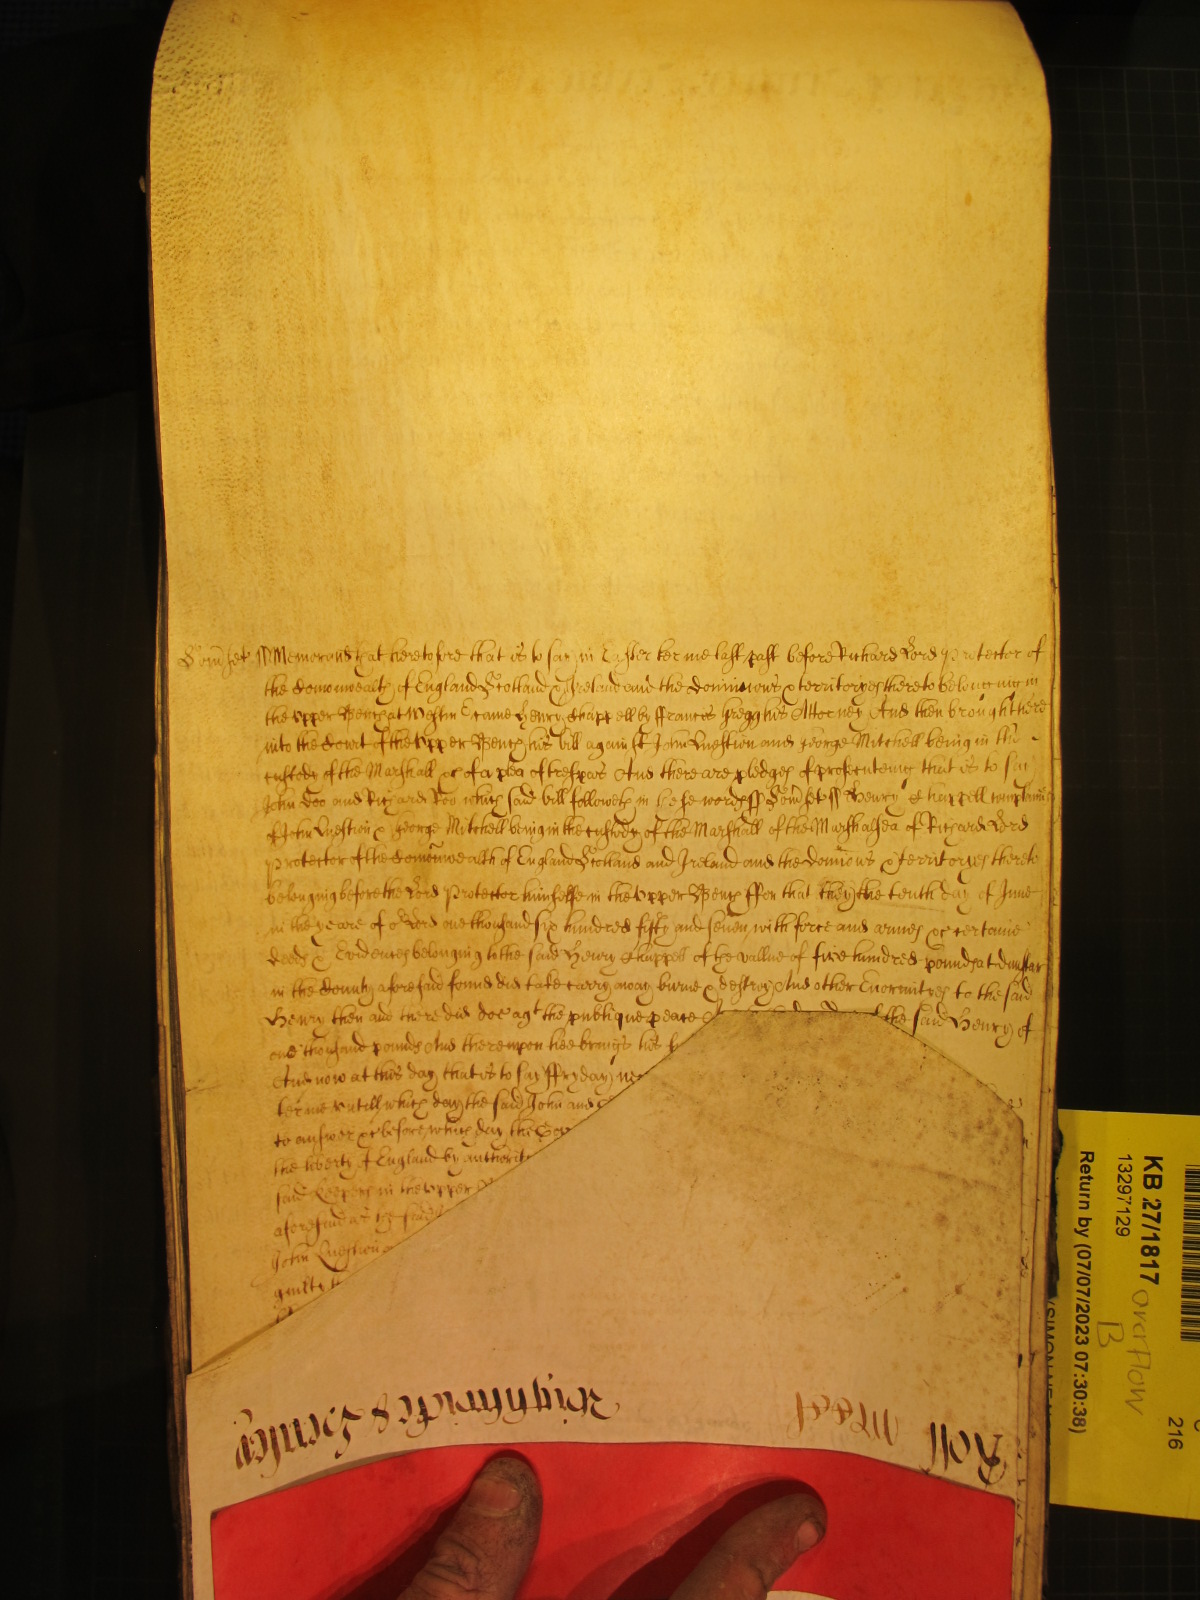 Som̃set ss Memorand that heretofore that is to say in Easter terme last past before Richard Lord Protector of
the Comonwealth of England Scotland & Ireland and the Dominions & territoryes thereto belonging in
the upper Bench at Westm̃ came Henry Chappell by Francis Gregg his Attorney And then brought there
into the Court of the upper Bench his bill against John Question and George Mitchell being in the
custody of the Marshall &c of a plea of trespas And there are pledges of prosecuteing that is to say
John Doo and Richard Roo which said bill followeth in these words ss Som̃set ss Henry Chappell complaines
of John Question & George Mitchell being in the custody of the Marshall of the Marshalsea of Richard Lord
Protector of the Comonwealth of England Scotland and Ireland and the Domions & territoryes thereto
belonging before the Lord Protector himselfe in the upper Bench ffor that they the tenth day of June
in the yeare of oʳ Lord one thousand six hundred fifty and seven with force and armes &c certaine
deeds & Evidences belonging to the said Henry Chappell of the vallue of five hundred pounds at Dunstar
in the County aforesaid found did take carry away burne & destroy And other Enormityes to the said
Henry then and there did doe agᵗ the publique peace the said Henry of
one thousand pounds And thereupon hee brings his
And now at this day that is to say ffryday
terme untill which day the said John and
to answer &c before which day the
the liberty of England by authority
said Keepers in the upper
aforesaid as the said
John Question
guilty
Roll
Wightwicke &
KB 27/1817
13297129
Return by (07/07/2023 07:30:38)
overflow
B
216